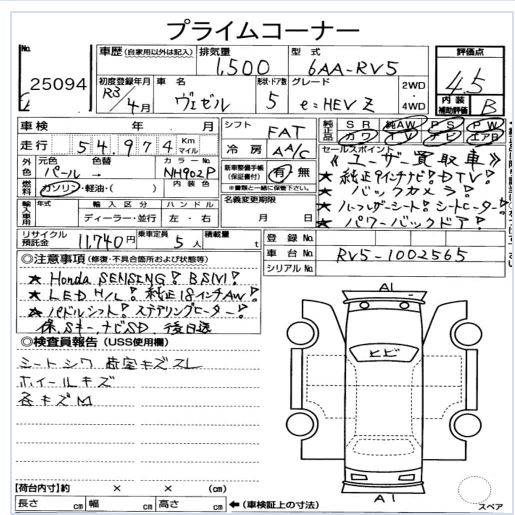 プライムコーナー
No. 25094
車歴 (自家用以外は記入) 排気量 1,500 型式 6AA-RV5
評価点 4.5
内装補助評価 B
初度登録年月 R3/4月 車名 ヴェゼル 形状・ドア数 5 グレード e:HEV Z 2WD・4WD
車検 年 月 シフト FAT
走行 54,974 Km マイル 冷房 AAC
純正品 SR 純AW PS PW
カワ TV ナビ エアB
外色 元色 パール→ 色替 カラーNo. NH902P 内装色
燃料 ガソリン・軽油・( )
新車整備手帳(保証書付) 有・無
※書類と一緒に保管下さい。
名義変更期限 月 日
セールスポイント
《ユーザー買取車》
★純正9インチナビ!DTV!
★バックカメラ!
★ハーフレザーシート!シートヒーター!
★パワーバックドア!
輸入車用 年式 輸入区分 ハンドル
ディーラー・並行 左・右
リサイクル預託金 11,740円 乗車定員 5人 積載量 t
登録No.
車台No. RV5-1002565
シリアルNo.
◎注意事項 (修復・不具合箇所および状態等)
★Honda SENSING! BSM!
★LED H/L! 純正18インチAW!
★パドルシフト! ステアリングヒーター!
保、Sキー、ナビSD 後日送
◎検査員報告 (USS使用欄)
シートシワ 荷室キズスレ
ホイールキズ
各キズM
A1
ヒビ
A1
【荷台内寸】約 × × (cm)
長さ cm 幅 cm 高さ cm ←(車検証上の寸法)
スペア